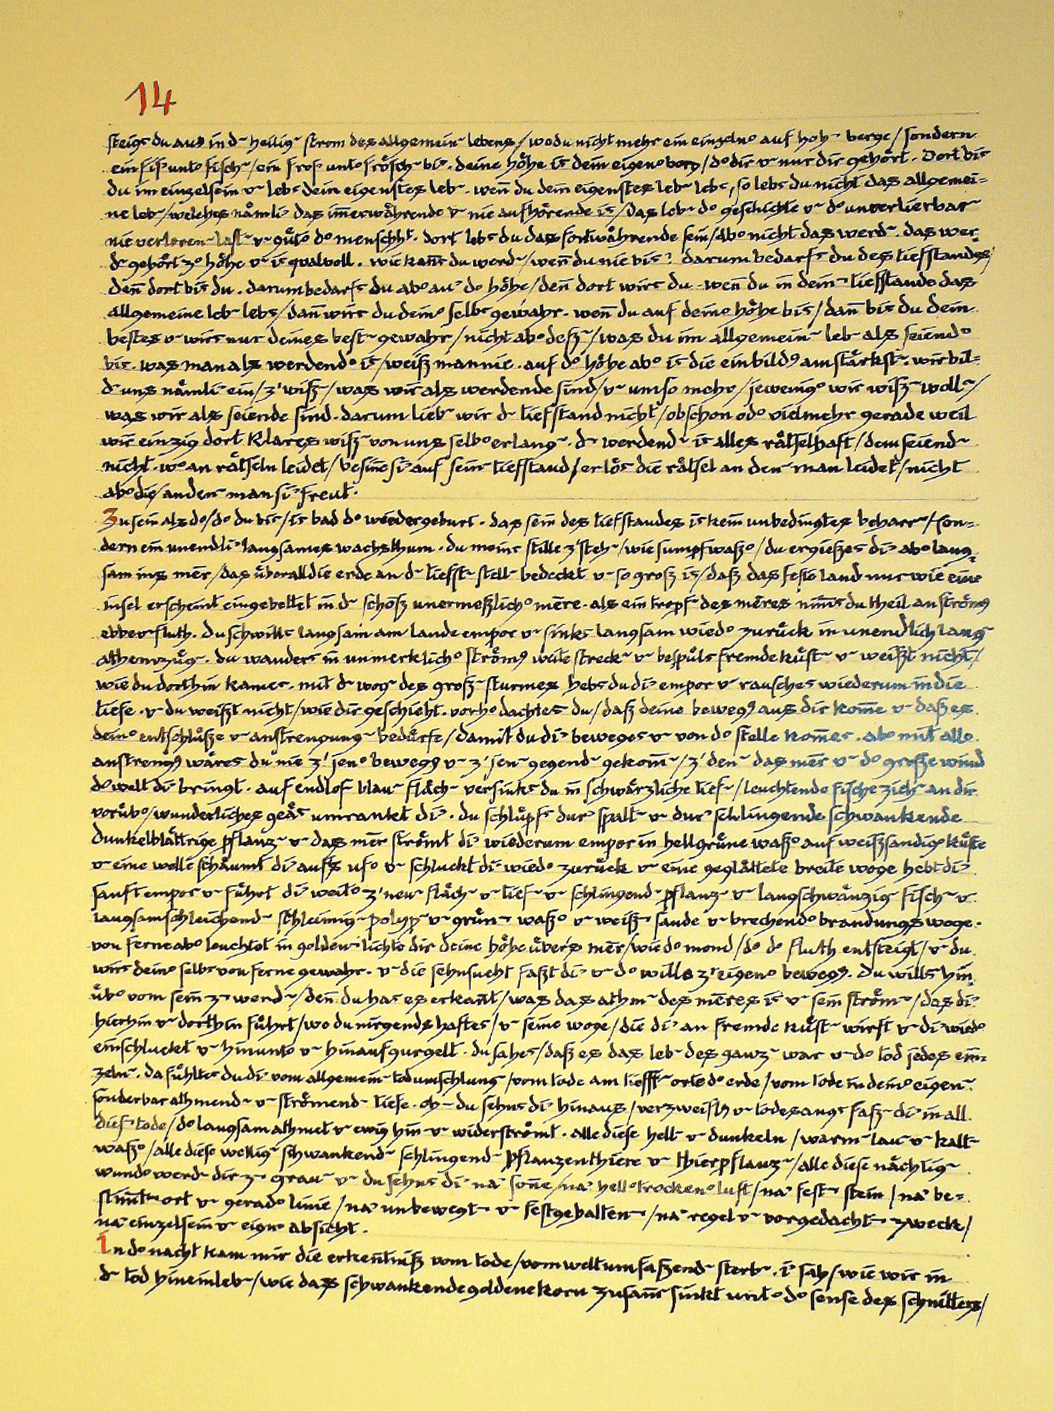 14
steigs du aus in d~ heilig~ strom des allgemein~ lebens/wo du nicht mehr ein einzelno auf hoh~ berge/sondern
ein fiſ~ unto fisch~/ein froſ~ unto fröſch~ bis~. deine höhe is dein eigeno berg/do dir v~ nur dir gehört. Dort bis
du im einzelsein v~ lebs dein eigenstes leb~. wen̄ du dein eigenstes leb~ lebs, so lebs du nicht das allgemei=
ne leb~/welches nämli~ das im̄erwährende v~ nie aufhörende is/das leb~ do geschichte v~ do unverlierbar~
nie verloren~ last~ v~ güto do menschht. dort lebs du das fortwährende sein/abo nicht das werd~. das wer=
d~ gehört zo höhe v~ is qualvoll. wie kan̄s du werd~/wen̄ du nie bis? darum bedarfs du des tiefstandes/
den̄ dort bis du. darum bedarfs du abo au~ do höhe/den̄ dort wirs du. wen̄ du in dein~ tiefstando das
allgemeine leb~ lebs/dan̄ wirs du deino selbs gewahr. wen̄ du auf deino höhe bis/dan̄ bis du dein~
bestes v~ wirs nur deines best~ gewahr/nicht abo deſz~/was du im allgemein~ leb~ als seiendo
bis. was man als werdendo is/weisz man nie. auf do höhe abo is die einbildg am stärkst~. wir bil=
d~ uns nämli~ ein/z~ wisz~/was wir als werdende sind/v~ umso mehr/jewenigo wir wisz~ woll~/
was wir als seiende sind. darum lieb~ wir d~ tiefstand nicht/obschon odo vielmehr gerade weil
wir einzig dort klares wisz~ von uns selbo erlang~. d~ werdend~ is alles rätselhaft/dem seiend~
nicht. wo an rätseln leidet/besin̄e si~ auf sein~ tiefstand/er lös die rätsel an den~ man leidet/nicht
abo die/an den~ man si~ freut.
Zu sein als do/do du bis/is bad do wiedergeburt. das sein des tiefstandes is kein unbedingtes beharr~/son=
dern ein unendli~ langsames wachsthum. du meins stille z~ steh~/wie sumpfwaszo/du ergieszes di~ abo lang=
sam ins mēr/das überall die erde an d~ tiefst~ stell~ bedeckt v~ so grosz is/dasz das feste land nur wie eine
insel erscheint eingebettet in d~ schosz unermeszlicho mēre. als ein tropf~ des mēres nim̄s du theil an strömg
ebbe v~ fluth. du schwills langsam am lande empor v~ sinks langsam wiedo zurück in unendlich lang~
athemzüg~. du wanders in unmerklicho strömg weite streck~ v~ bespüls fremde küst~ v~ weiszt nicht/
wie du dorthin kames. mit d~ wog~ des grosz~ sturmes hebs du di~ empor v~ rausches wiederum in die
tiefe. v~ du weiszt nicht/wie dir geschieht. vorho dachtes du/dasz deine bewegg aus dir kom̄e v~ dasz es
deino entschlüsze v~ anstrengung~ bedürfe/damit du di~ beweges v~ von do stelle kom̄es. abo mit allo
anstrengg wäres du nie z~ jeno bewegg v~ z~ jen~ gegend~ gekom̄~/z~ den~ das mēr v~ do grosze wind
do welt di~ bringt. auf endlos~ blau~ fläch~ versinks du in schwärzliche tief~/leuchtende fische zieh~ an dir
vorübo/wunderliches geäs umrankt di~. du schlüpfs dur~ spalt~ v~ dur~ schlingende schwankende
dunkelblättrige pflanz~ v~ das mēr strömt di~ wiederum empor in hellgrüne waszo auf weiszsandige küste
v~ eine welle schäumt di~ aufs ufo v~ schluckt di~ wiedo zurück v~ eine geglättete breite woge hebt di~
sanft empor v~ führt di~ weito z~ neu~ fläch~ v~ tief~ v~ schlingend~ pflanz~ v~ langschwänzig~ fisch~ v~
langsamschleichend~ schleimig~ polyp~ v~ grün~ waszo v~ weisz~ sande v~ brechendo brandungswoge.
von ferne abo leuchtet in golden~ lichte dir deine höhe übers mēr/wie do mond/do do fluth entsteigt/v~ du
wirs deino selbs von ferne gewahr. v~ die sehnsucht faszt di~ v~ do wille z~ eigeno bewegg. Du wills hin=
übo vom sein z~ werd~/den̄ du has es erkan̄t/was das athm~ des mēres is v~ sein ström~/das di~
hierhin v~ dorthin führt/wo du nirgends haftes/v~ seine woge/die di~ an fremde küst~ wirft v~ di~ wiedo
einschluckt v~ hinunto v~ hinauf gurgelt. du sahes/dasz es das leb~ des ganz~ war v~ do tod jedes ein=
zeln~. da fühltes du di~ vom allgemein~ tod umschlung~/vom tode am tiefst~ orte do erde/vom tode in deino eigen~
sonderbar athmend~ v~ strömend~ tiefe. oh~ du sehns di~ hinaus/verzweiflg v~ todesangs fasz~ di~ in all~
dies~ tode/do langsam athmet v~ ewig hin v~ widerströmt. alle diese hell~ v~ dunkeln/warm~ lau~ v~ kalt~
waszo/alle diese wellig~ schwankend~ schlingend~ pflanzenthiere v~ thierpflanz~/alle diese nächtlig~
wundo werd~ dir z~ grau~ v~ du sehns di~ na~ son̄e/na~ hello trockeno luft/na~ fest~ stein/na~ be=
stim̄t~ ort v~ gerado linie/na~ unbewegt~ v~ festgehalten~/na~ regel v~ vorgedacht~ zweck/
na~ einzelsein v~ eigno absicht.
In do nacht kam mir die erken̄tnisz vom tode/vom weltumfaszend~ sterb~. i~ sah/wie wir in
d~ tod hineinleb~/wie das schwankende goldene korn zusam̄~ sinkt unto do sense des schnitters/